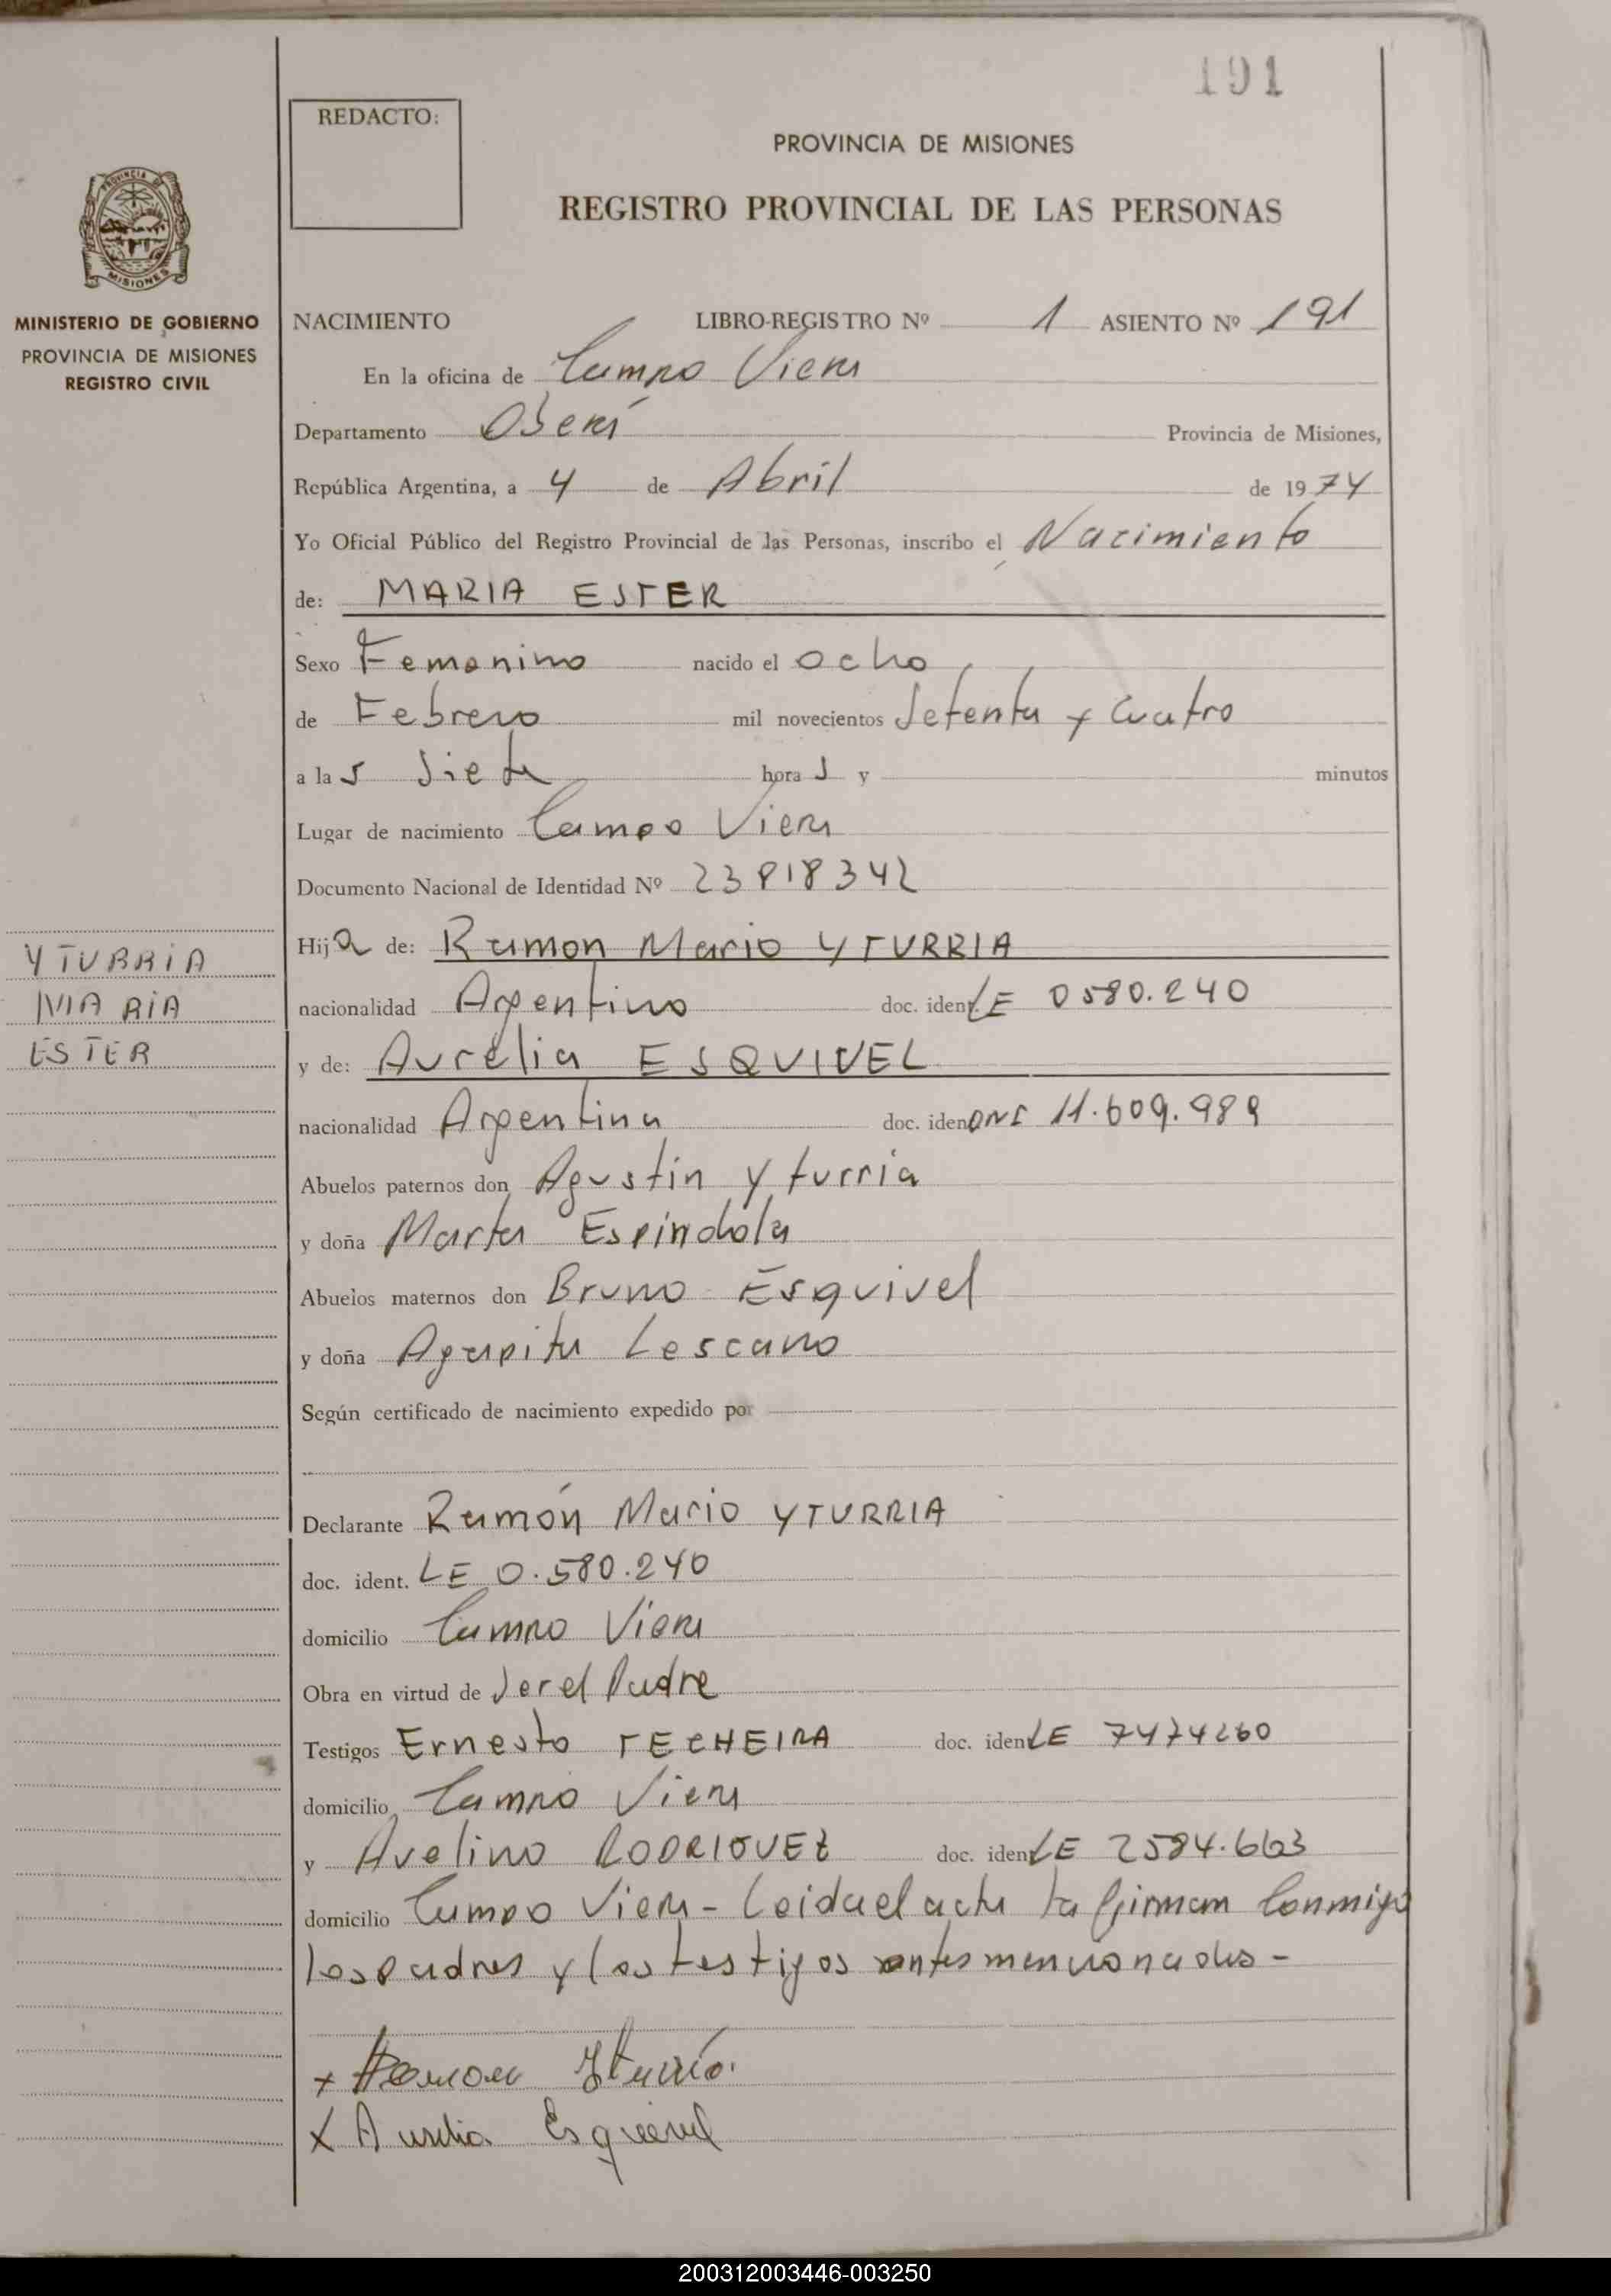 191
REDACTO:
PROVINCIA DE MISIONES
REGISTRO PROVINCIAL DE LAS PERSONAS
PROVINCIA DE
MISIONES
MINISTERIO DE GOBIERNO
PROVINCIA DE MISIONES
REGISTRO CIVIL
NACIMIENTO LIBRO-REGISTRO Nº 1 ASIENTO Nº 191
En la oficina de Campo Viera
Departamento Oberá Provincia de Misiones,
República Argentina, a 4 de Abril de 1974
Yo Oficial Público del Registro Provincial de las Personas, inscribo el Nacimiento
de: MARIA ESTER
Sexo Femenino nacido el ocho
de Febrero mil novecientos Setenta y Cuatro
a las Siete horas y minutos
Lugar de nacimiento Campo Viera
Documento Nacional de Identidad Nº 23818342
Hija de: Ramon Mario YTURRIA
nacionalidad Argentino doc. ident. LE 0580.240
y de: Aurelia ESQUIVEL
nacionalidad Argentina doc. iden DNI 11.609.989
YTURRIA
MARIA
ESTER
Abuelos paternos don Agustin Yturria
y doña Marta Espindola
Abuelos maternos don Bruno Esquivel
y doña Agapita Lescano
Según certificado de nacimiento expedido por
Declarante Ramón Mario YTURRIA
doc. ident. LE 0.580.240
domicilio Campo Viera
Obra en virtud de Ser el Padre
Testigos Ernesto TECHEIRA doc. iden LE 7474260
domicilio Campo Viera
y Avelino RODRIGUEZ doc. iden LE 2584.663
domicilio Campo Viera - Leida el acta la firman Conmigo
los padres y los testigos antes mencionados -
x Ramon Yturria.
x Aurelia Esquivel
200312003446-003250